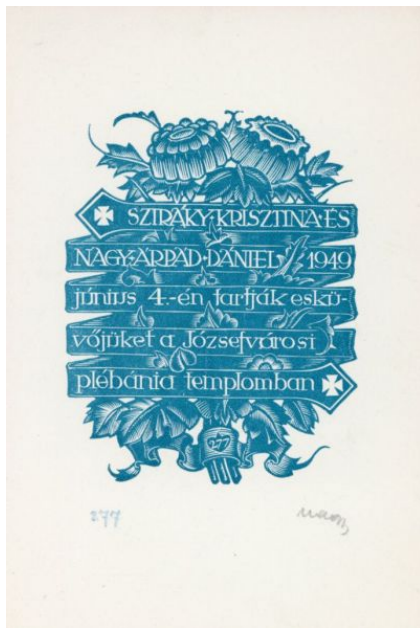 SZIRÁKY·KRISZTINA·ÉS
NAGY·ÁRPÁD·DÁNIEL 1949
június 4.-én tartják eskü-
vőjüket a Józsefvárosi
plébánia templomban
277
277